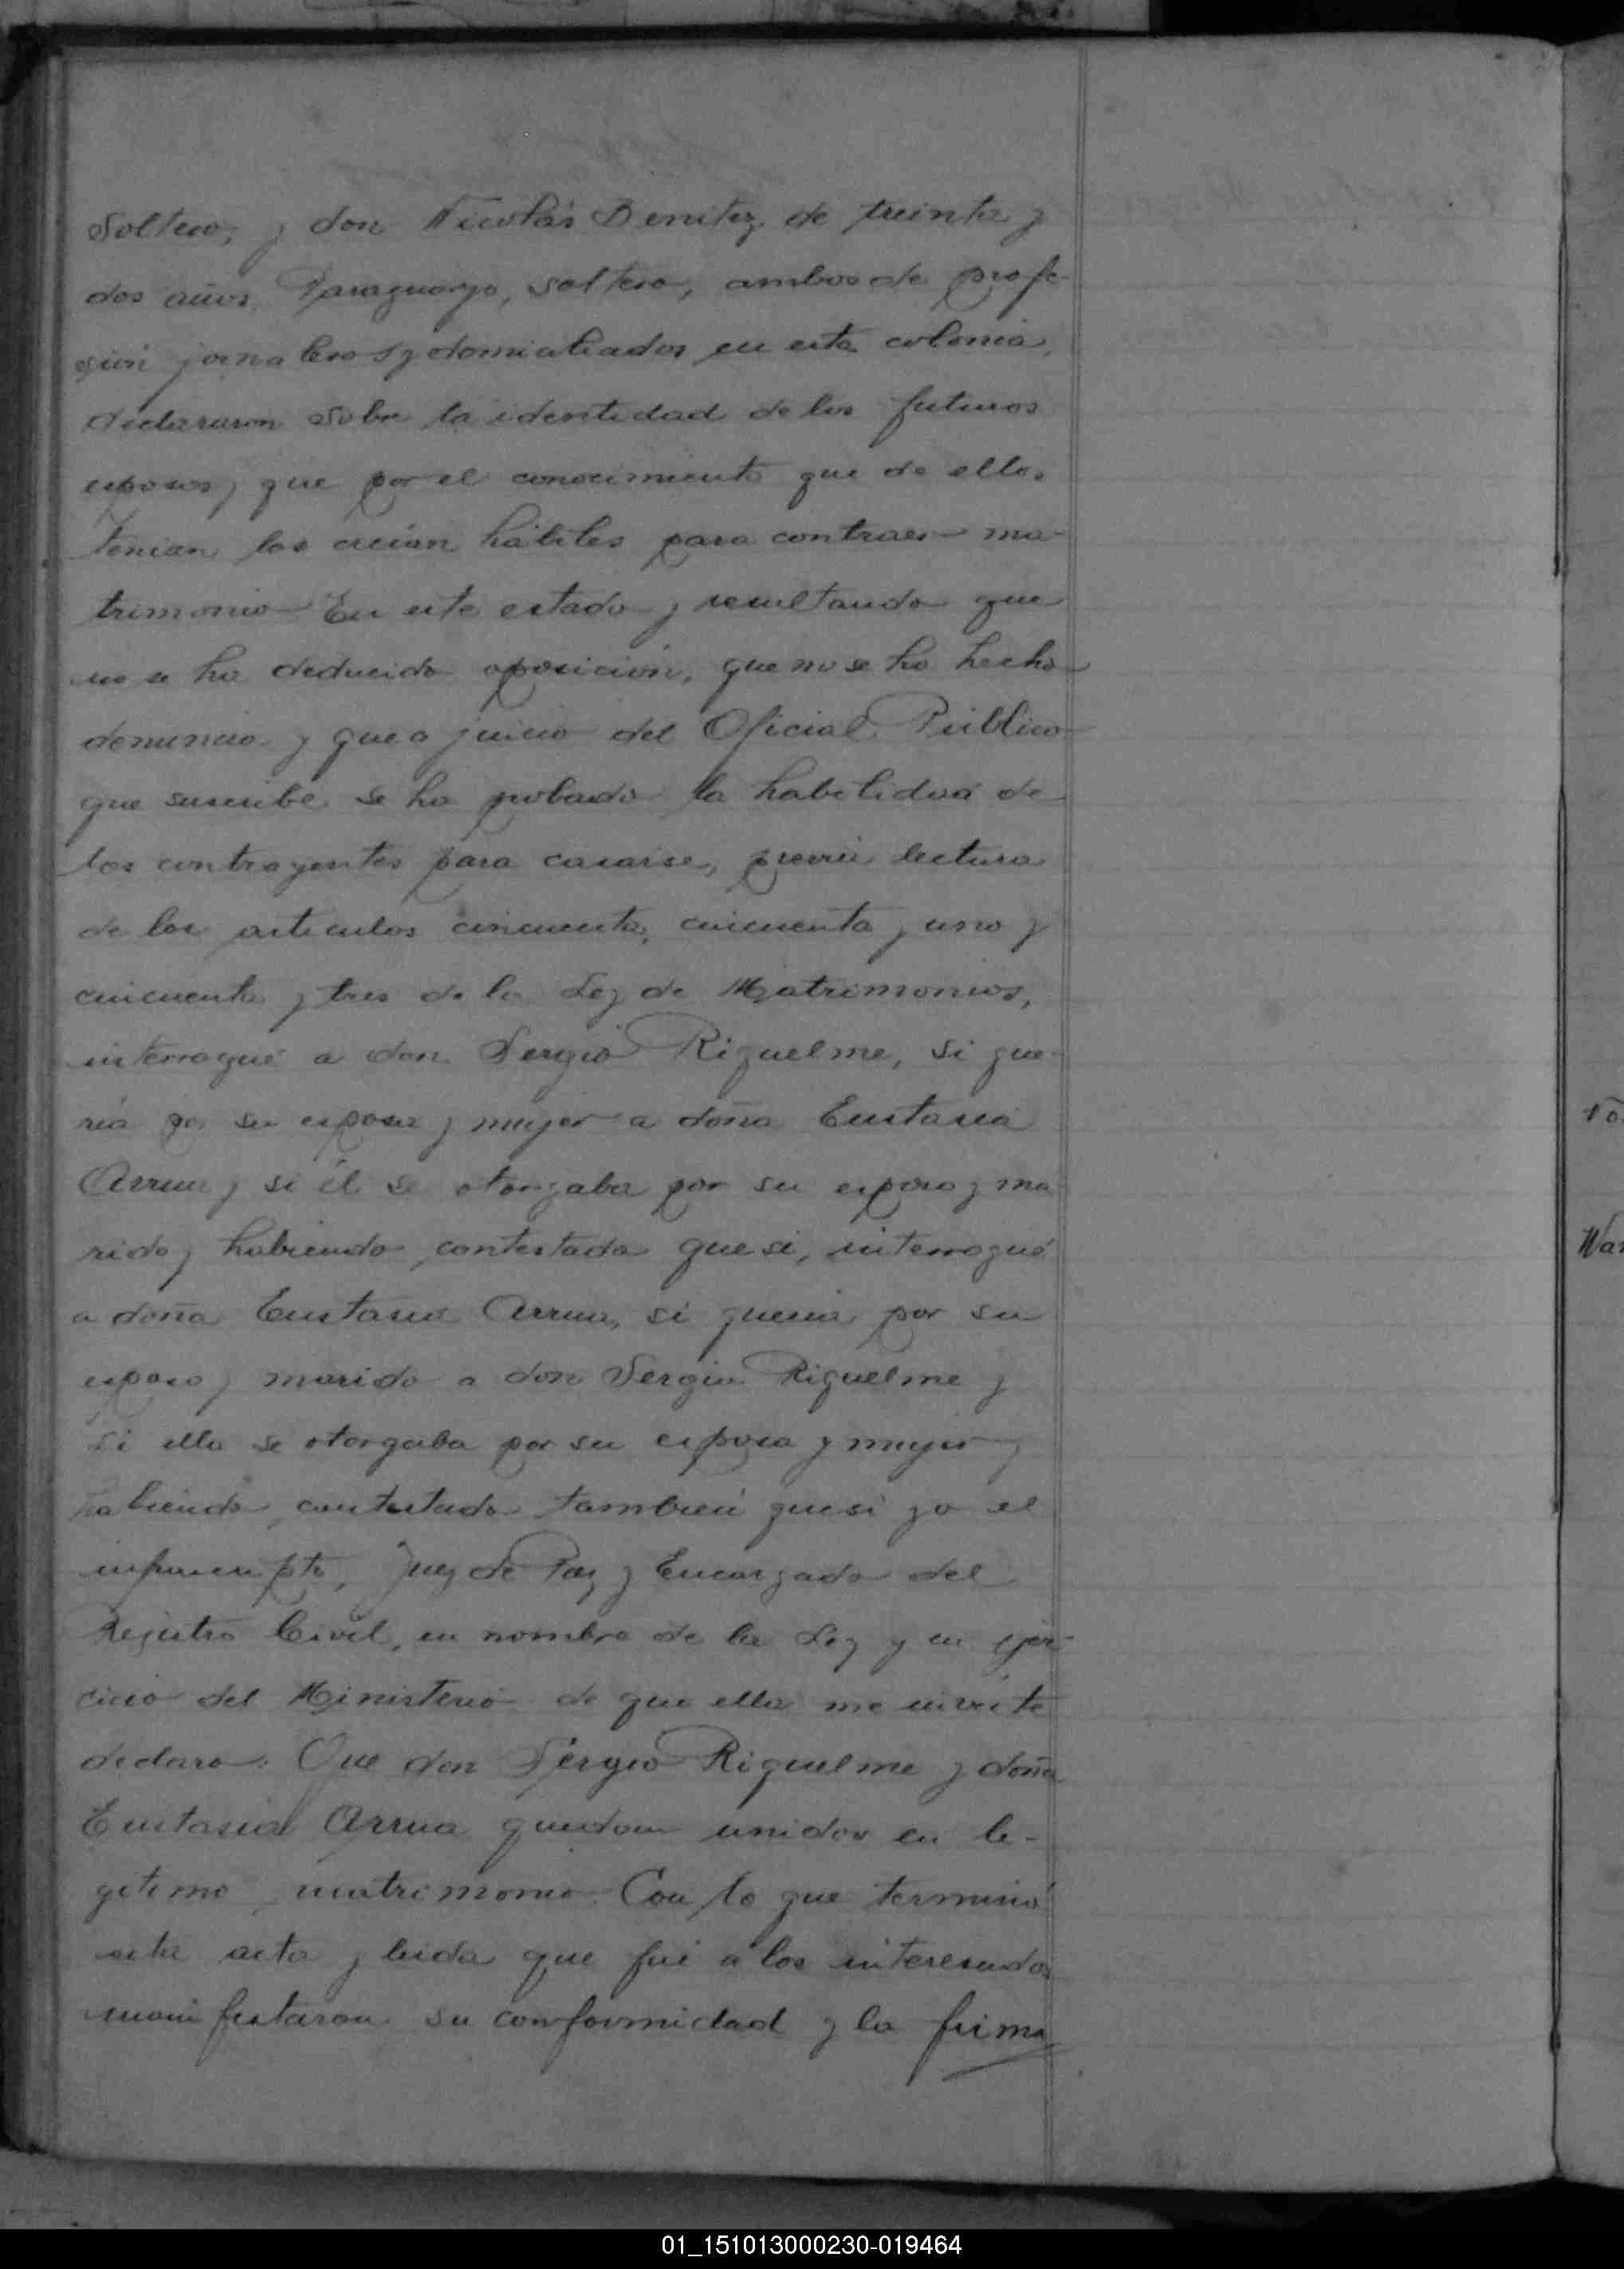 Soltero, y don Nicolás Benitez, de treinta y
dos años, Paraguayo, soltero, ambos de profe-
sión jornaleros y domiciliados en esta colonia,
declararon sobre la identidad de los futuros
esposos y que por el conocimiento que de ellos
tenian los creían hábiles para contraer ma-
trimonio En este estado y resultando que
no se ha deducido oposición, que no se ha hecho
denuncia y que a juicio del Oficial Público
que suscribe se ha probado la habilidad de
los contrayentes para casarse, previa lectura
de los articulos cincuenta, cincuenta y uno y
cincuenta y tres de la Ley de Matrimonios,
interrogué a don Sergio Riquelme, si que-
ria por su esposa y mujer a doña Eustasia
Arrua y si él se otorgaba por su esposo y ma-
rido y habiendo contestado que si, interrogué
a doña Eustasia Arrua, si queria por su
esposo y marido a don Sergio Riquelme y
si ella se otorgaba por su esposa y mujer y
habiendo contestado también que si yo el
infrascripto, Juez de Paz y Encargado del
Registro Civil, en nombre de la Ley y en ejer-
cicio del Ministerio de que ella me inviste
declaro: Que don Sergio Riquelme y doña
Eustasia Arrua quedan unidos en le-
gitimo matrimonio. Con lo que terminó
esta acta y leida que fué a los interesados
manifestaron su conformidad y la firma
Va
01_151013000230-019464